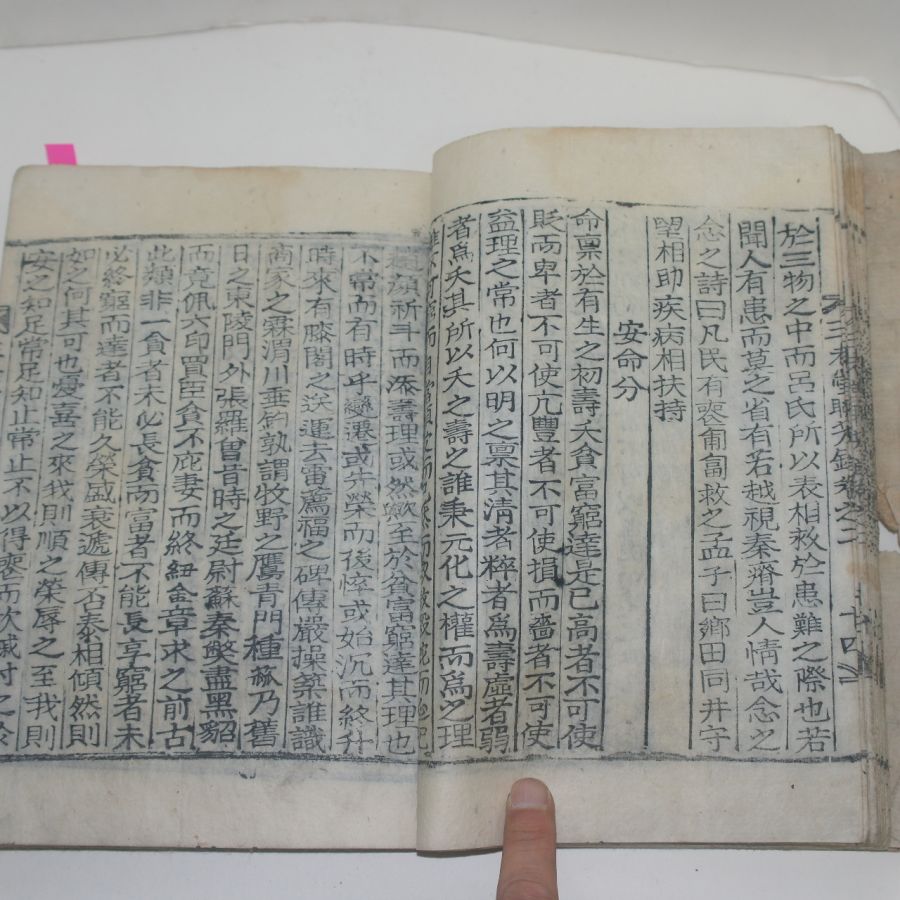 於三物之中而呂氏所以表相救於患難之際也若
聞人有患而莫之省有若越視秦瘠豈人情哉念之
念之詩曰凡民有喪匍匐救之孟子曰鄕田同井守
望相助疾病相扶持
安命分
命禀於有生之初壽夭貧富窮達是已高者不可使
貶而卑者不可使亢豐者不可使損而嗇者不可使
益理之常也何以明之禀其清者粹者爲壽虛者弱
者爲夭淇所以夭之壽之誰秉元化之權而爲之理
顔祈斗而添壽理或然歟至於貧富窮達其理也
不常而有時乎變遷或先榮而後悴或始沉而終升
時來有滕閣之送運去雷薦福之碑傳嚴操築誰識
商家之霖渭川垂釣孰謂牧野之鷹青門種瓜乃舊
日之東陵門外張羅曾昔時之廷尉蘇秦㡀盡黑貂
而竟佩六印買臣貧不庇妻而終紐金章求之前古
此類非一貧者未必長貧而富者不能長享窮者未
必終窮而達者不能久榮盛衰遞傳否泰相傾然則
如之何其可也憂喜之來我則順之榮辱之至我則
安之知足常足知止常止不以得喪而欣戚付之於